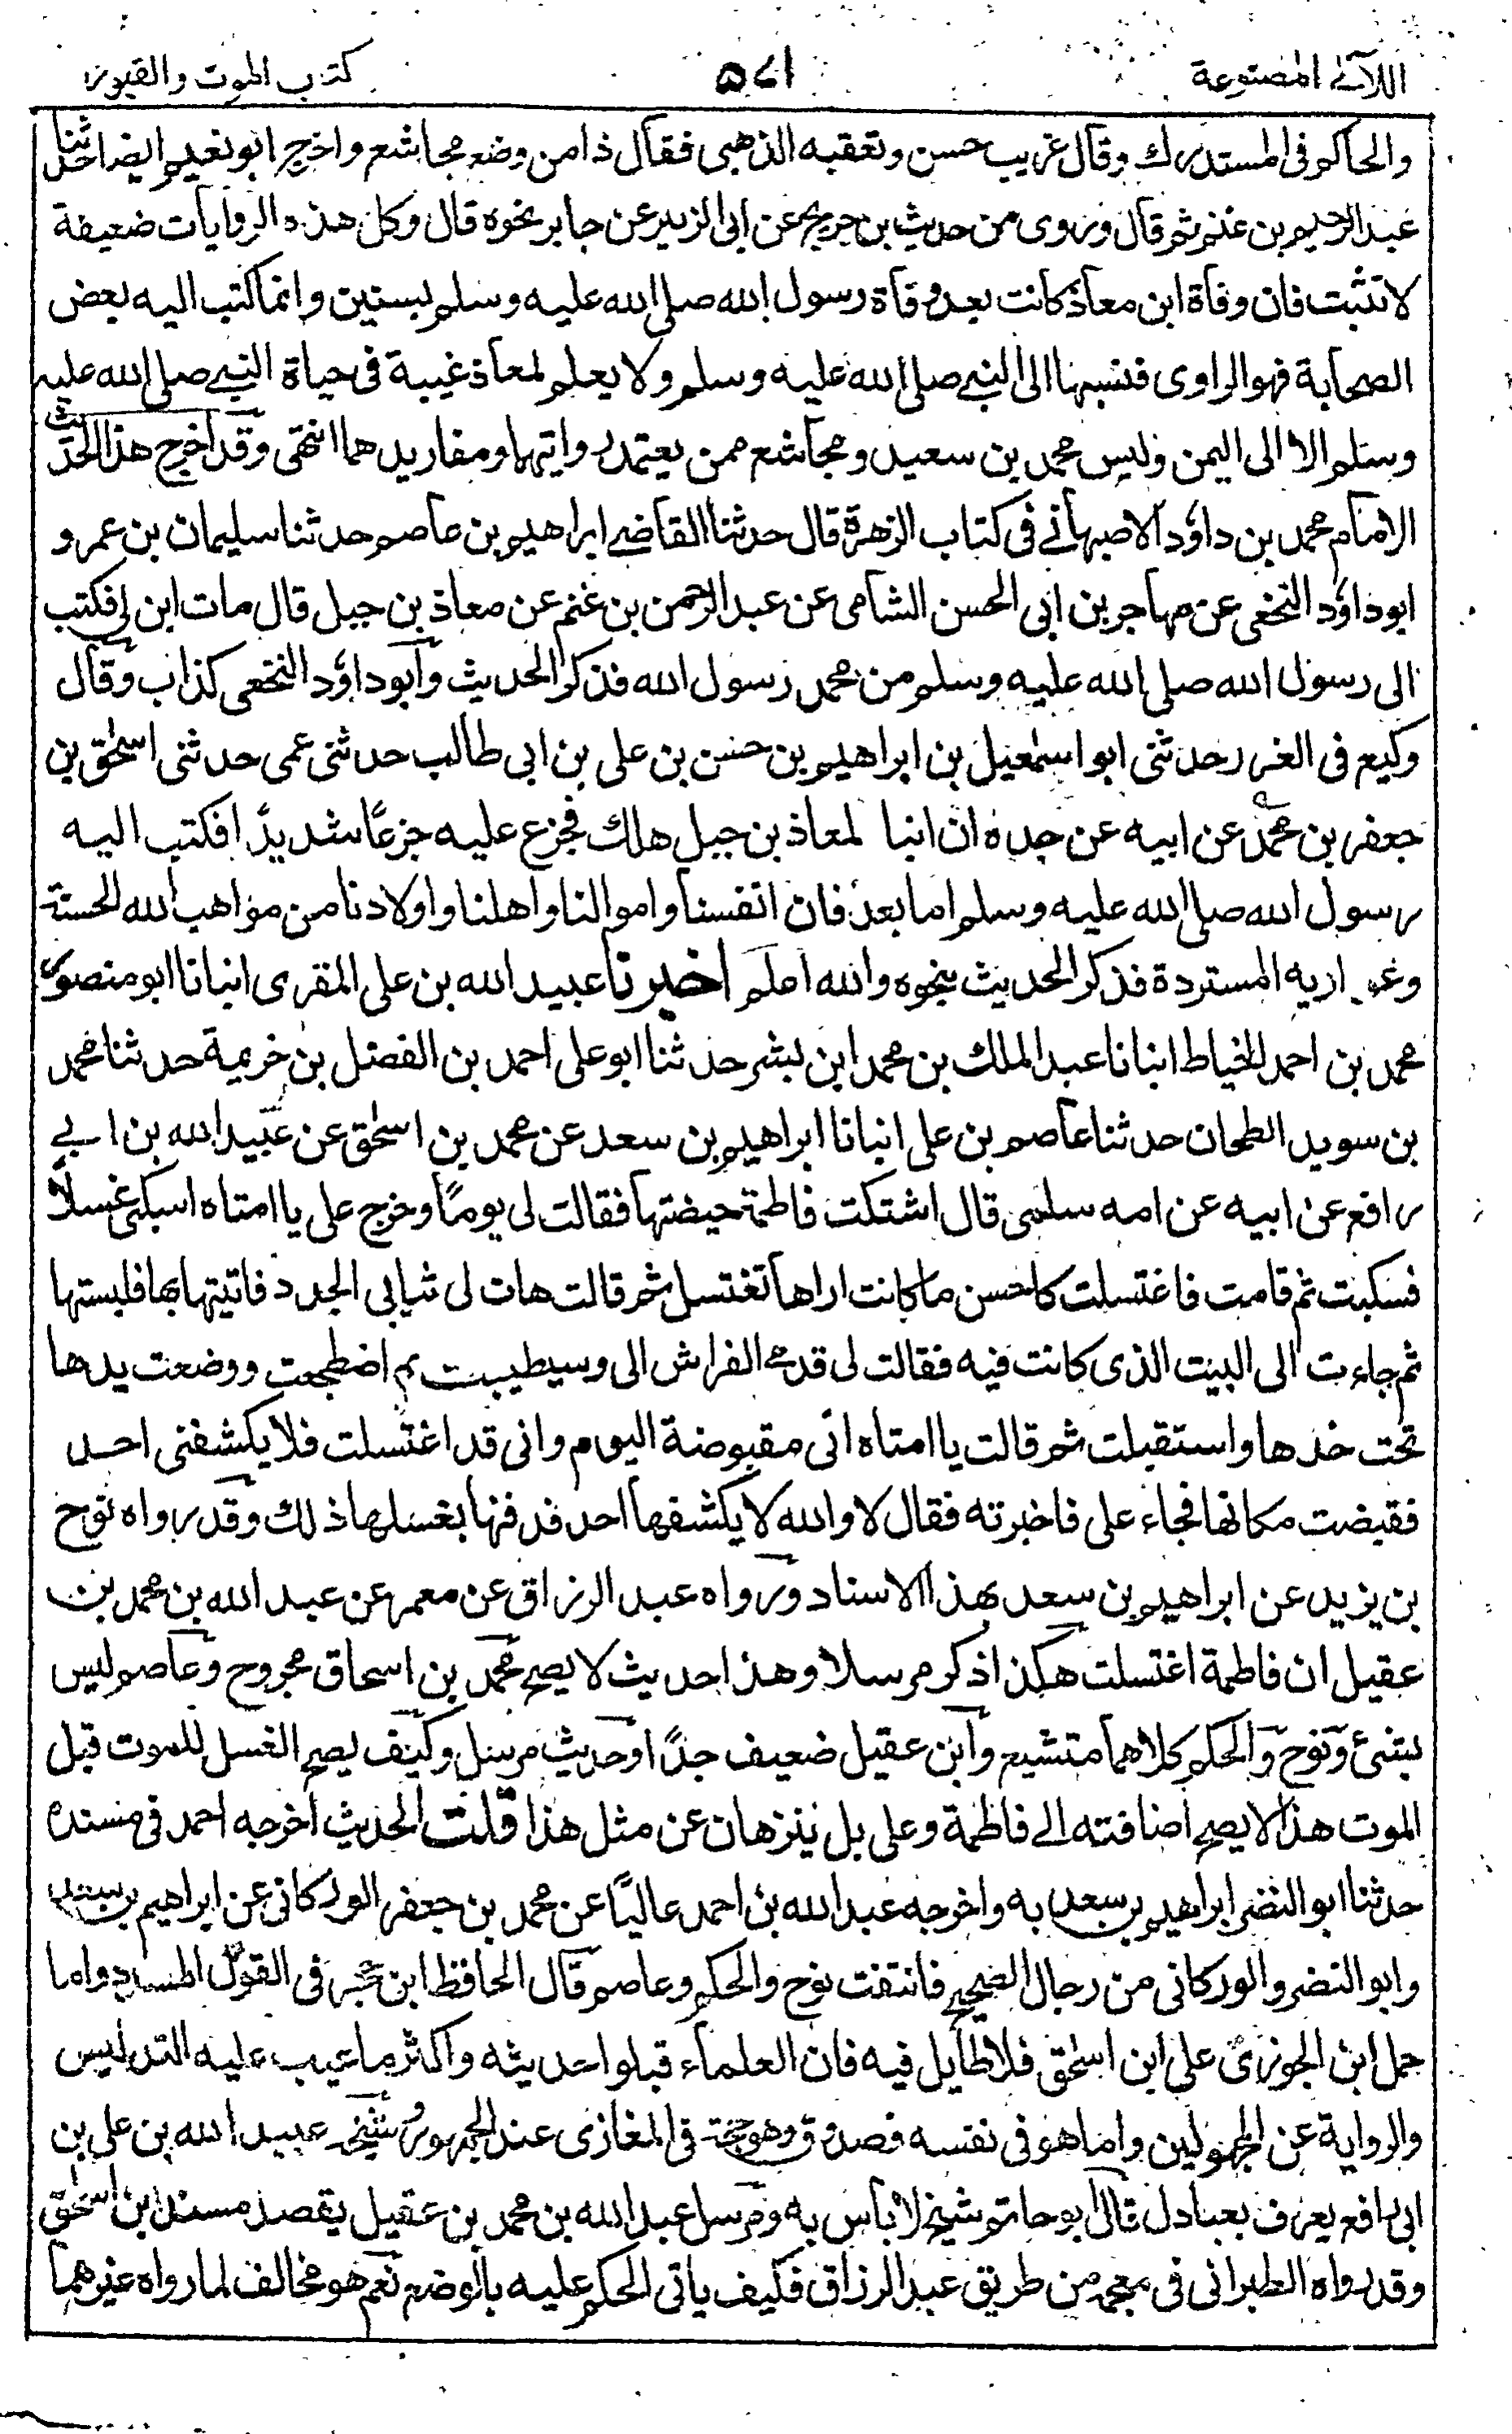 اللآلى المصنوعة
٥٧١
كتاب الموت والقبور
والحاكم فى المستدرك وقال غريب حسن وتعقبه الذهبى فقال ذا من وضع مجاشع واخرج ابو نعيم ايضا حدثنا
عبد الرحيم بن غنم ثم قال وروى من حديث بن جريج عن ابى الزبير عن جابر نحوه قال وكل هذه الروايات ضعيفة
لا تثبت فان وفاة ابن معاذ كانت بعد وفاة رسول الله صلى الله عليه وسلم بسنتين وانما كتب اليه بعض
الصحابة فهو الراوى فنسبها الى النبى صلى الله عليه وسلم ولا يعلم لمعاذ غيبة فى حياة النبى صلى الله عليه
وسلم الا الى اليمن وليس محمد بن سعيد ومجاشع ممن يعتمد روايتهما ومفاريدهما انتهى وقد اخرج هذا الحديث
الامام محمد بن داؤد الاصبهانى فى كتاب الزهرة قال حدثنا القاضى ابراهيم بن عاصم حدثنا سليمان بن عمرو
ابو داؤد النخعى عن مهاجر بن ابى الحسن الشامى عن عبد الرحمن بن غنم عن معاذ بن جبل قال مات ابن لى فكتب
الى رسول الله صلى الله عليه وسلم من محمد رسول الله فذكر الحديث وابو داؤد النخعى كذاب وقال
وكيع فى الغرر حدثنى ابو اسمٰعيل بن ابراهيم بن حسن بن على بن ابى طالب حدثنى عمى حدثنى اسحٰق بن
جعفر بن محمد عن ابيه عن جده ان ابنا لمعاذ بن جبل هلك فجزع عليه جزعًا شديدًا فكتب اليه
رسول الله صلى الله عليه وسلم اما بعد فان انفسنا واموالنا واهلنا واولادنا من مواهب الله الحسنة
وعواريه المستردة فذكر الحديث بنحوه والله اعلم اخبرنا عبيد الله بن على المقرى انبانا ابو منصور
محمد بن احمد الخياط انبانا عبد الملك بن محمد ابن بشر حدثنا ابو على احمد بن الفضل بن خزيمة حدثنا محمد
بن سويد الطحان حدثنا عاصم بن على انبانا ابراهيم بن سعد عن محمد بن اسحٰق عن عبيد الله بن ابى
رافع عن ابيه عن امه سلمى قال اشتكت فاطمة حيضتها فقالت لى يومًا وخرج على يا امتاه اسكبى غسلًا
فسكبت ثم قامت فاغتسلت كاحسن ما كانت اراها تغتسل ثم قالت هات لى ثيابى الجدد فاتيتها بها فلبستها
ثم جاءت الى البيت الذى كانت فيه فقالت لى قدمى الفراش الى وسيط بيت ثم اضطجعت ووضعت يدها
تحت خدها واستقبلت ثم قالت يا امتاه انى مقبوضة اليوم وانى قد اغتسلت فلا يكشفنى احد
فقبضت مكانها فجاء على فاخبرته فقال لا والله لا يكشفها احد فدفنها بغسلها ذلك وقد رواه نوح
بن يزيد عن ابراهيم بن سعد بهذا الاسناد ورواه عبد الرزاق عن معمر عن عبد الله بن محمد بن
عقيل ان فاطمة اغتسلت هكذا ذكر مرسلا وهذا حديث لا يصح محمد بن اسحاق مجروح وعاصم ليس
بشئ ونوح والحكم كلاهما متشيع وابن عقيل ضعيف جدًا وحديث مرسل وكيف يصح الغسل للموت قبل
الموت هذا لا يصح اضافته الى فاطمة وعلى بل ينزهان عن مثل هذا قلت الحديث اخرجه احمد فى مسنده
حدثنا ابو النضر ابراهيم بن سعد به واخرجه عبد الله بن احمد عاليًا عن محمد بن جعفر الوركانى عن ابراهيم بن سعد
وابو النضر والوركانى من رجال الصحيح فانتفت نوح والحكم وعاصم قال الحافظ ابن حجر فى القول المسدد واما
حمل ابن الجوزى على ابن اسحٰق فلا طايل فيه فان العلماء قبلوا حديثه واكثر ما عيب عليه التدليس
والرواية عن المجهولين واما هو فى نفسه فصدوق وهو حجة فى المغازى عند الجمهور وشيخه عبيد الله بن على بن
ابى رافع يعرف بعبادل قال ابو حاتم شيخ لا باس به ومرسل عبد الله بن محمد بن عقيل يقصد مسند ابن اسحٰق
وقد رواه الطبرانى فى معجمه من طريق عبد الرزاق فكيف ياتى الحكم عليه بالوضع نعم هو مخالف لما رواه غيرهما